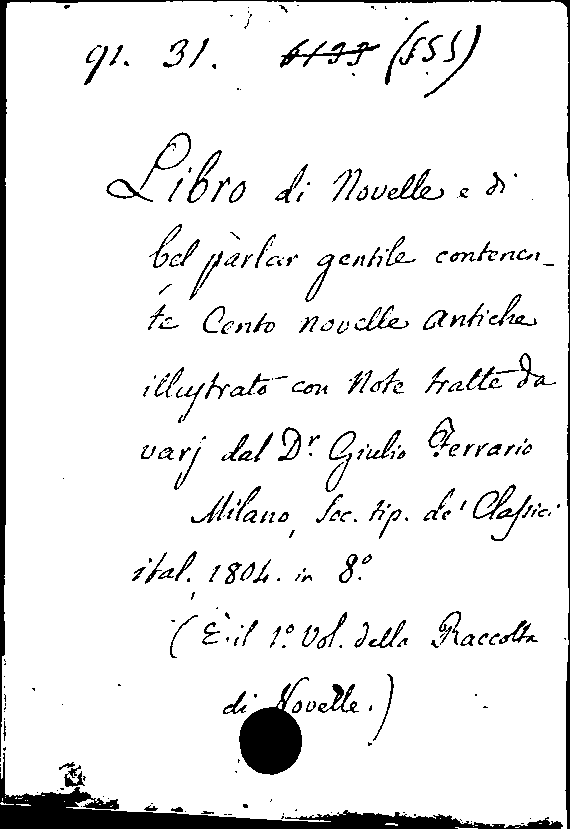 91. 31. 6133 (SSS)
Libro di Novelle e di
bel parlar gentile contenen-
te Cento novelle antiche
illustrato con Note tratte da
varj dal Dr. Giulio Ferrario
Milano, Soc. tip. de' Classici
ital. 1804. in 8.°
(È il 1.° Vol. della Raccolta
di Novelle.)